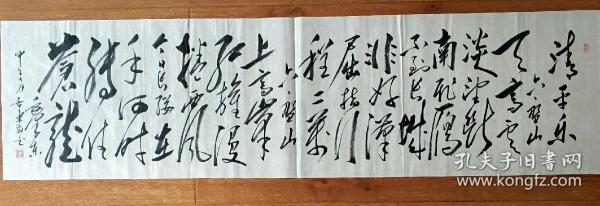 清平乐
六盘山
天高雲
淡望断
南飛雁
不到长城
非好漢
屈指行
程二萬
六盘山
上高峰
红旗漫
捲西风
今日长缨在
手何时
缚住
蒼龍
毛泽东
孔夫子旧书网
www.kongfz.com